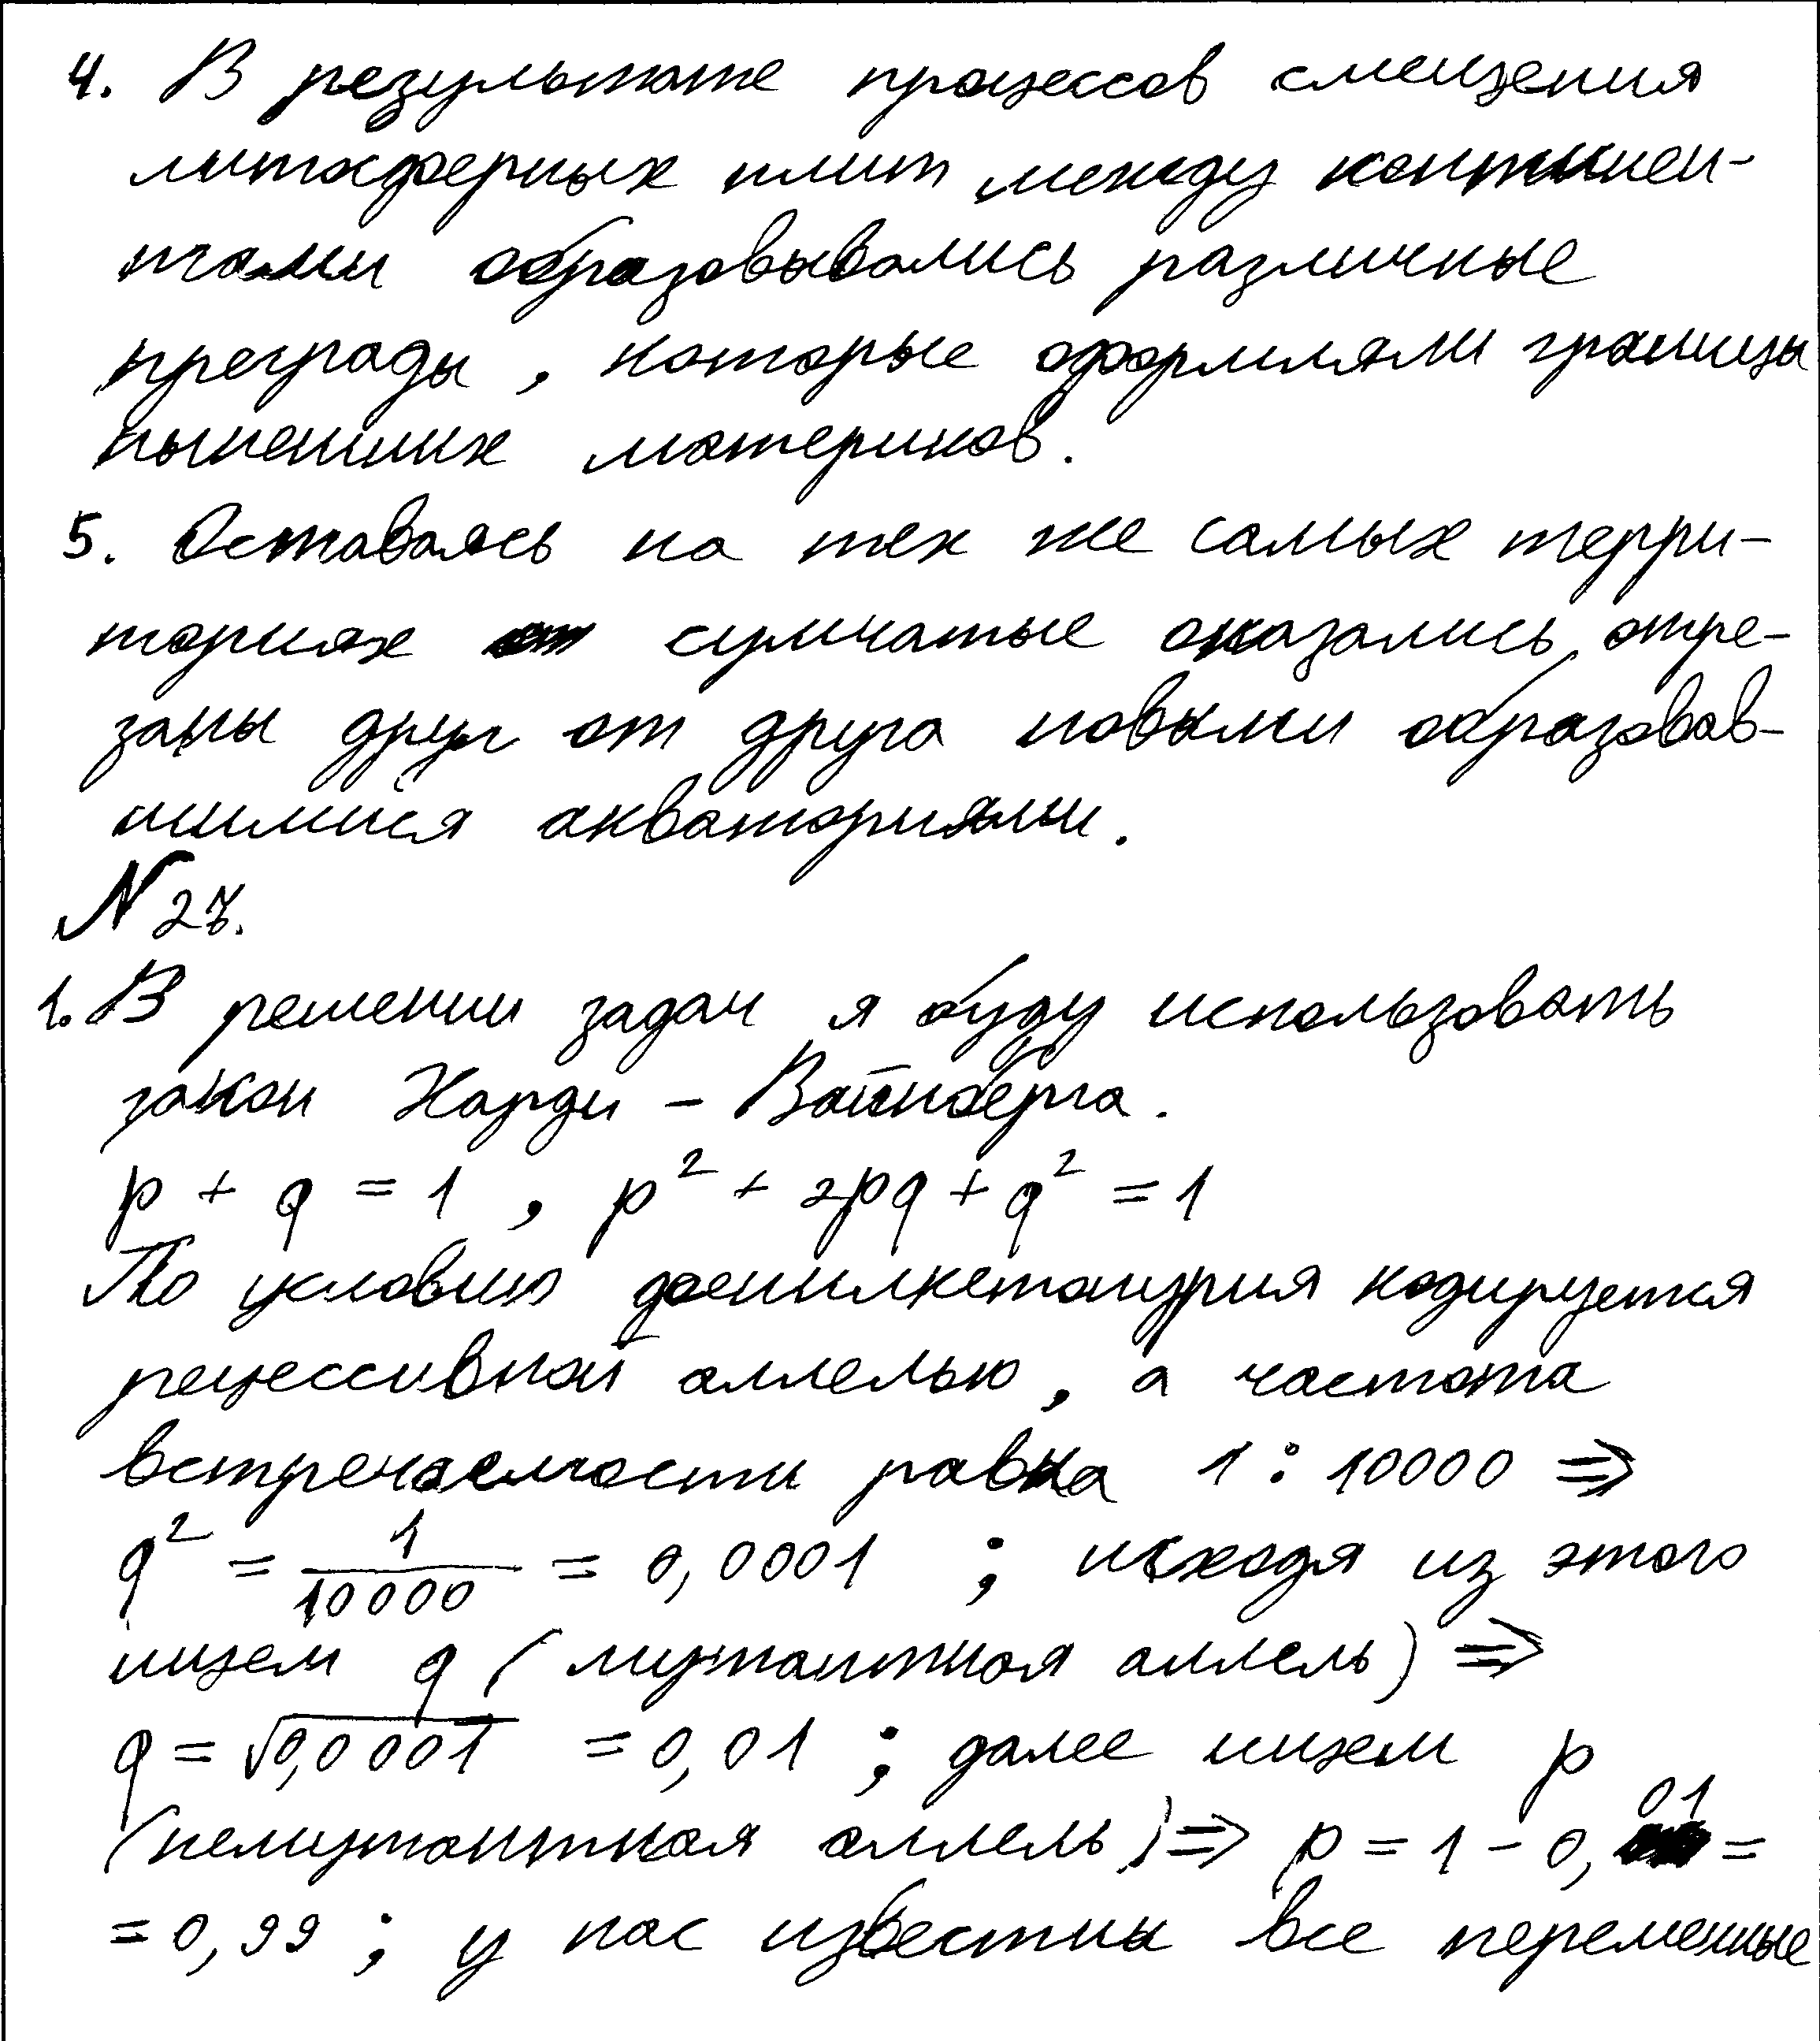 4. В результате процессов смещения
литосферных плит между континен-
тами образовывались различные
преграды, которые оформляли границы
нынешних материков.
5. Оставаясь на тех же самых терри-
ториях сумчатые оказались отре-
заны друг от друга новыми образовав-
шимися акваториями.
N 27.
1. В решении задач я буду использовать
закон Харди - Вайнберга.
p + q = 1 , p² + 2pq + q² = 1
По условию фенилкетонурия кодируется
рецессивной аллелью, а частота
встречаемости равна 1 : 10000 ⇒
q² = 1/10000 = 0,0001 ; исходя из этого
ищем q (мутантная аллель) ⇒
q = √0,0001 = 0,01 ; далее ищем p
(немутантная аллель) ⇒ p = 1 - 0,01 =
= 0,99 ; у нас известны все переменные